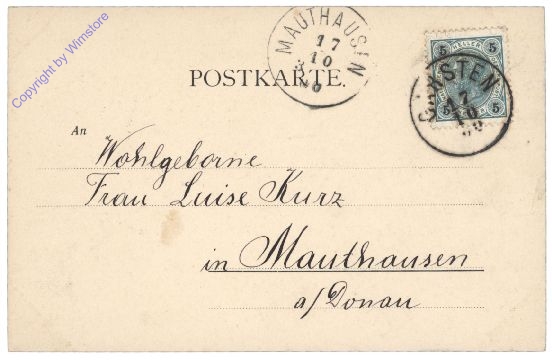 Copyright by Wimstore
MAUTHAUSEN
17
10
5 HELLER 5
5 5
GARSTEN
17
10
POSTKARTE.
An
Wohlgeborne
Frau Luise Kurz
in Mauthausen
a/Donau